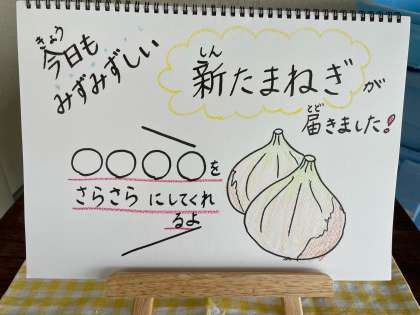 今日も
きょう
みずみずしい
しん
新たまねぎが
とど
届きました!
〇〇〇〇を
さらさらにしてくれ
るよ